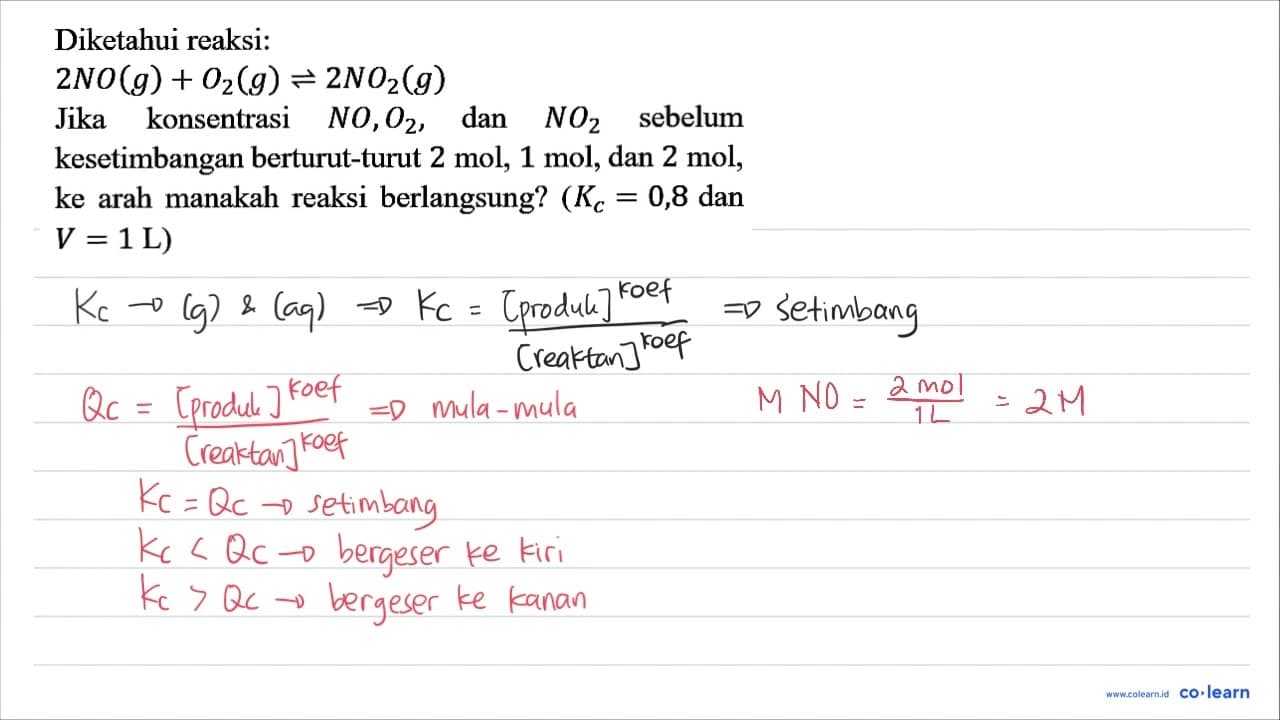 Diketahui reaksi:
2NO(g) + O₂(g) ⇌ 2NO₂(g)
Jika konsentrasi NO, O₂, dan NO₂ sebelum
kesetimbangan berturut-turut 2 mol, 1 mol, dan 2 mol,
ke arah manakah reaksi berlangsung? (K_c = 0,8 dan
V = 1 L)
Kc → (g) & (aq) ⇒ Kc = [produk]^koef / [reaktan]^koef ⇒ setimbang
Qc = [produk]^koef / [reaktan]^koef ⇒ mula-mula
M NO = 2 mol / 1L = 2M
Kc = Qc → setimbang
Kc < Qc → bergeser ke kiri
Kc > Qc → bergeser ke kanan
www.colearn.id co·learn